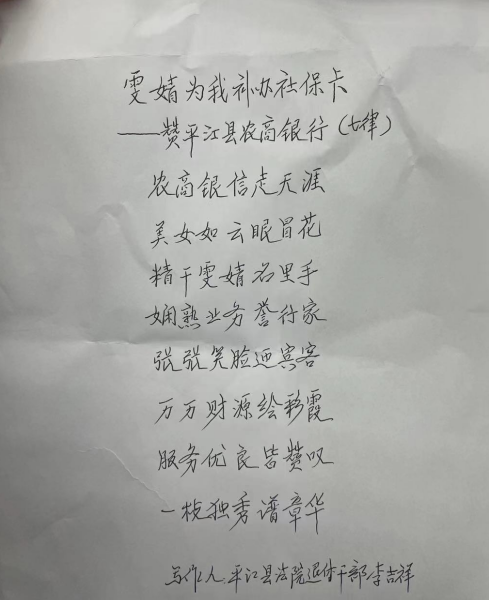 雯婧为我补办社保卡
——赞平江县农商银行(七律)
农商银信走天涯
美女如云眼冒花
精干雯婧名里手
娴熟业务誉行家
张张笑脸迎宾客
万万财源绘彩霞
服务优良皆赞叹
一枝独秀谱章华
写作人平江县法院退休干部李吉祥